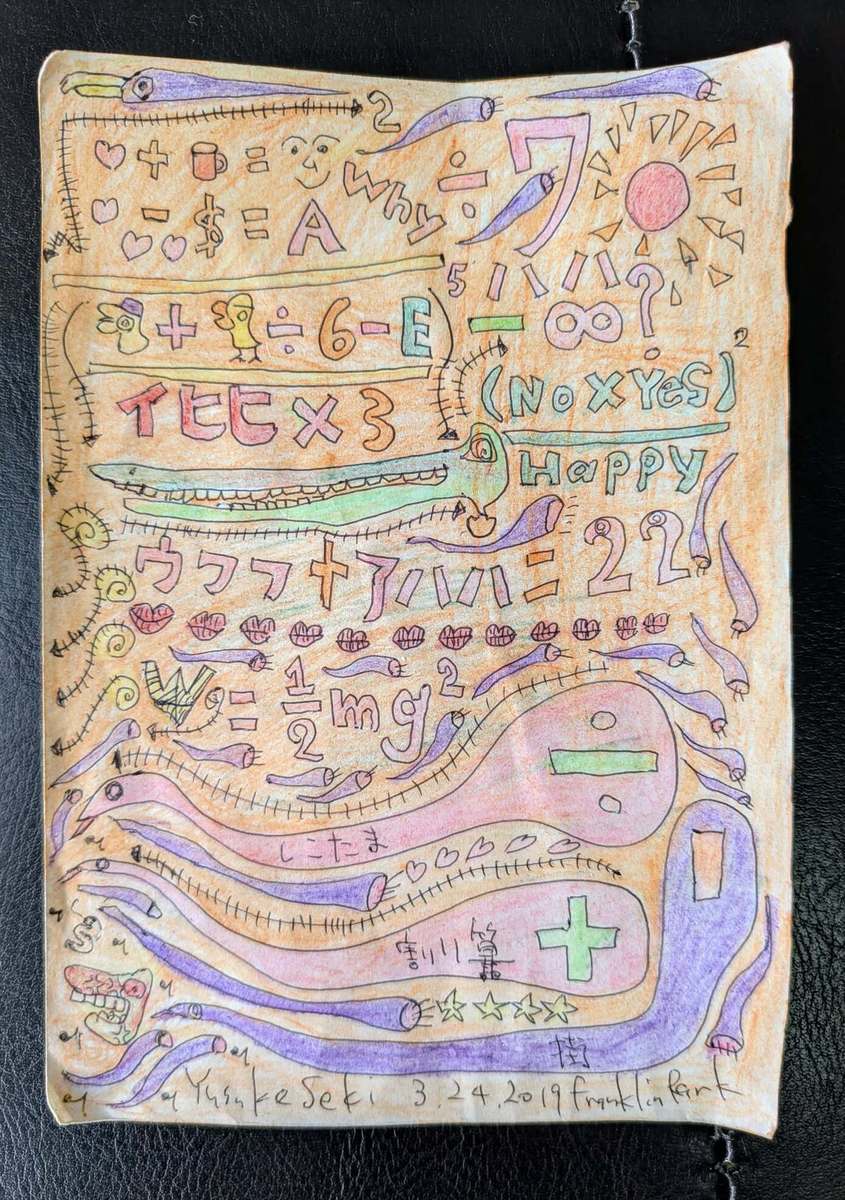 2
+ = Why ÷ ワ
- $ = A
5 ハハ
+ ÷ 6 - E - ∞ ?
イヒヒ×3 (No×Yes)²
Happy
ウフフ+アハハ=22
W = 1/2 mg²
÷
しこたま
割り算 +
Yusuke Seki 3.24.2019 Franklin Park